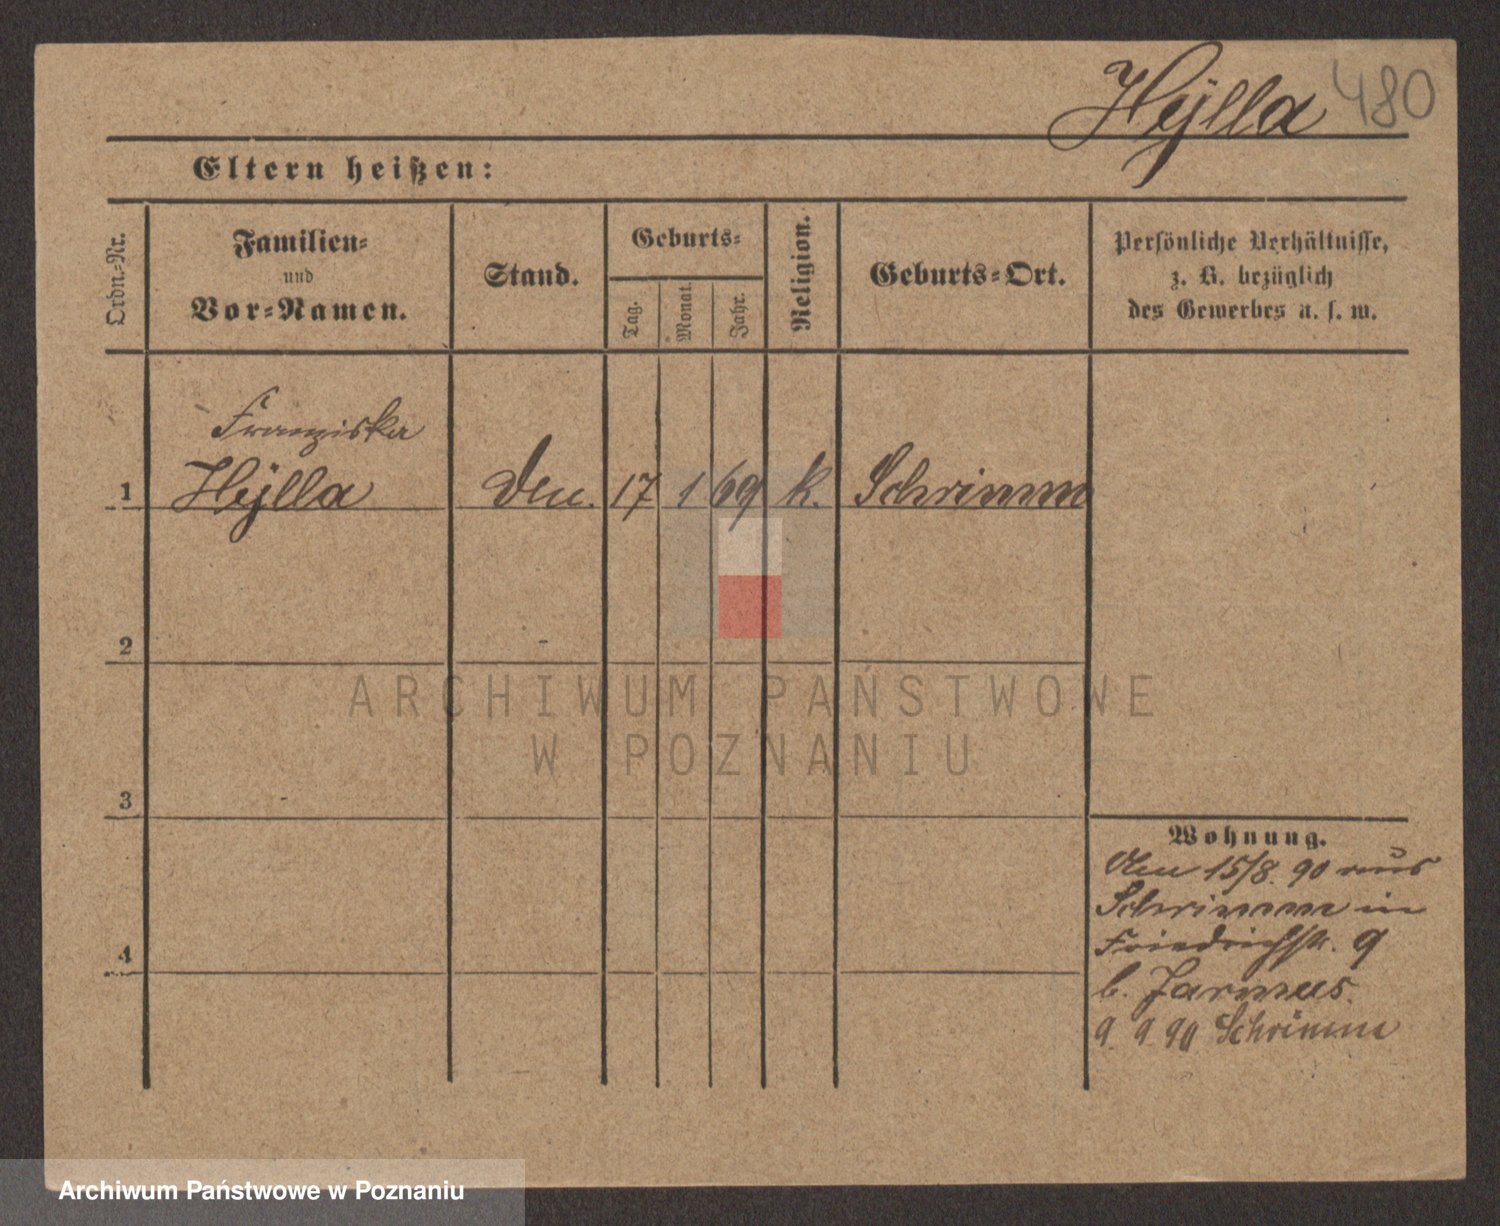 Hÿlla 480
Eltern heißen:
Ordn.=Nr.
Familien=
und
Vor=Namen.
Stand.
Geburts=
Tag.
Monat.
Jahr.
Religion.
Geburts=Ort.
Persönliche Verhältnisse,
z. B. bezüglich
des Gewerbes u. s. w.
Franziska
1 Hÿlla 17 1 69 k. Schrimm
2
3
4
Wohnung.
15/8. 90 aus
Schrimm in
Friedrichstr. 9
b. Jarmus.
9. 9. 90 Schrimm
ARCHIWUM PAŃSTWOWE
W POZNANIU
Archiwum Państwowe w Poznaniu